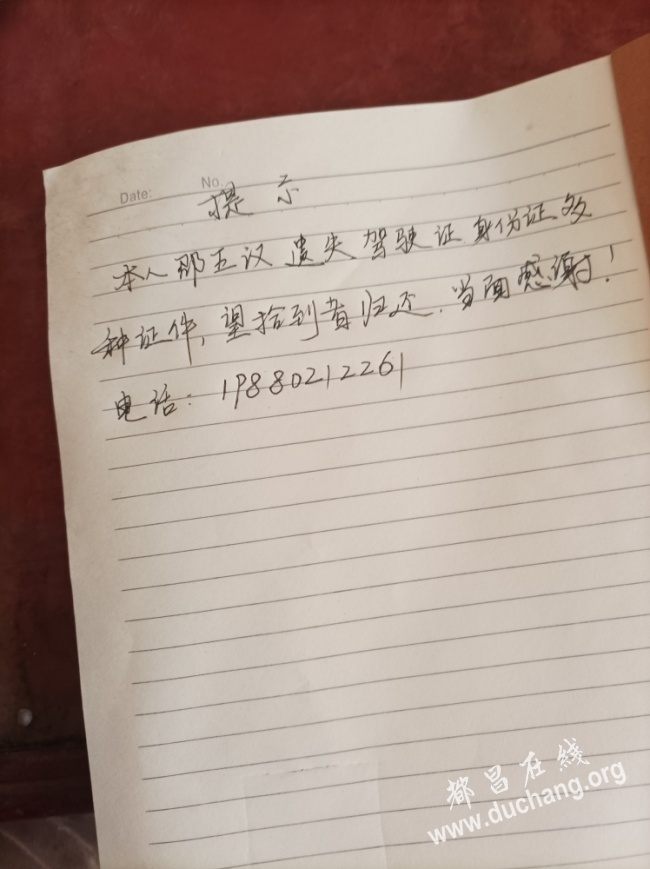 Date:
No.
提示
本人邵五议遗失驾驶证身份证多
种证件,望拾到者归还.当面感谢!
电话:19880212261
都昌在线
www.duchang.org